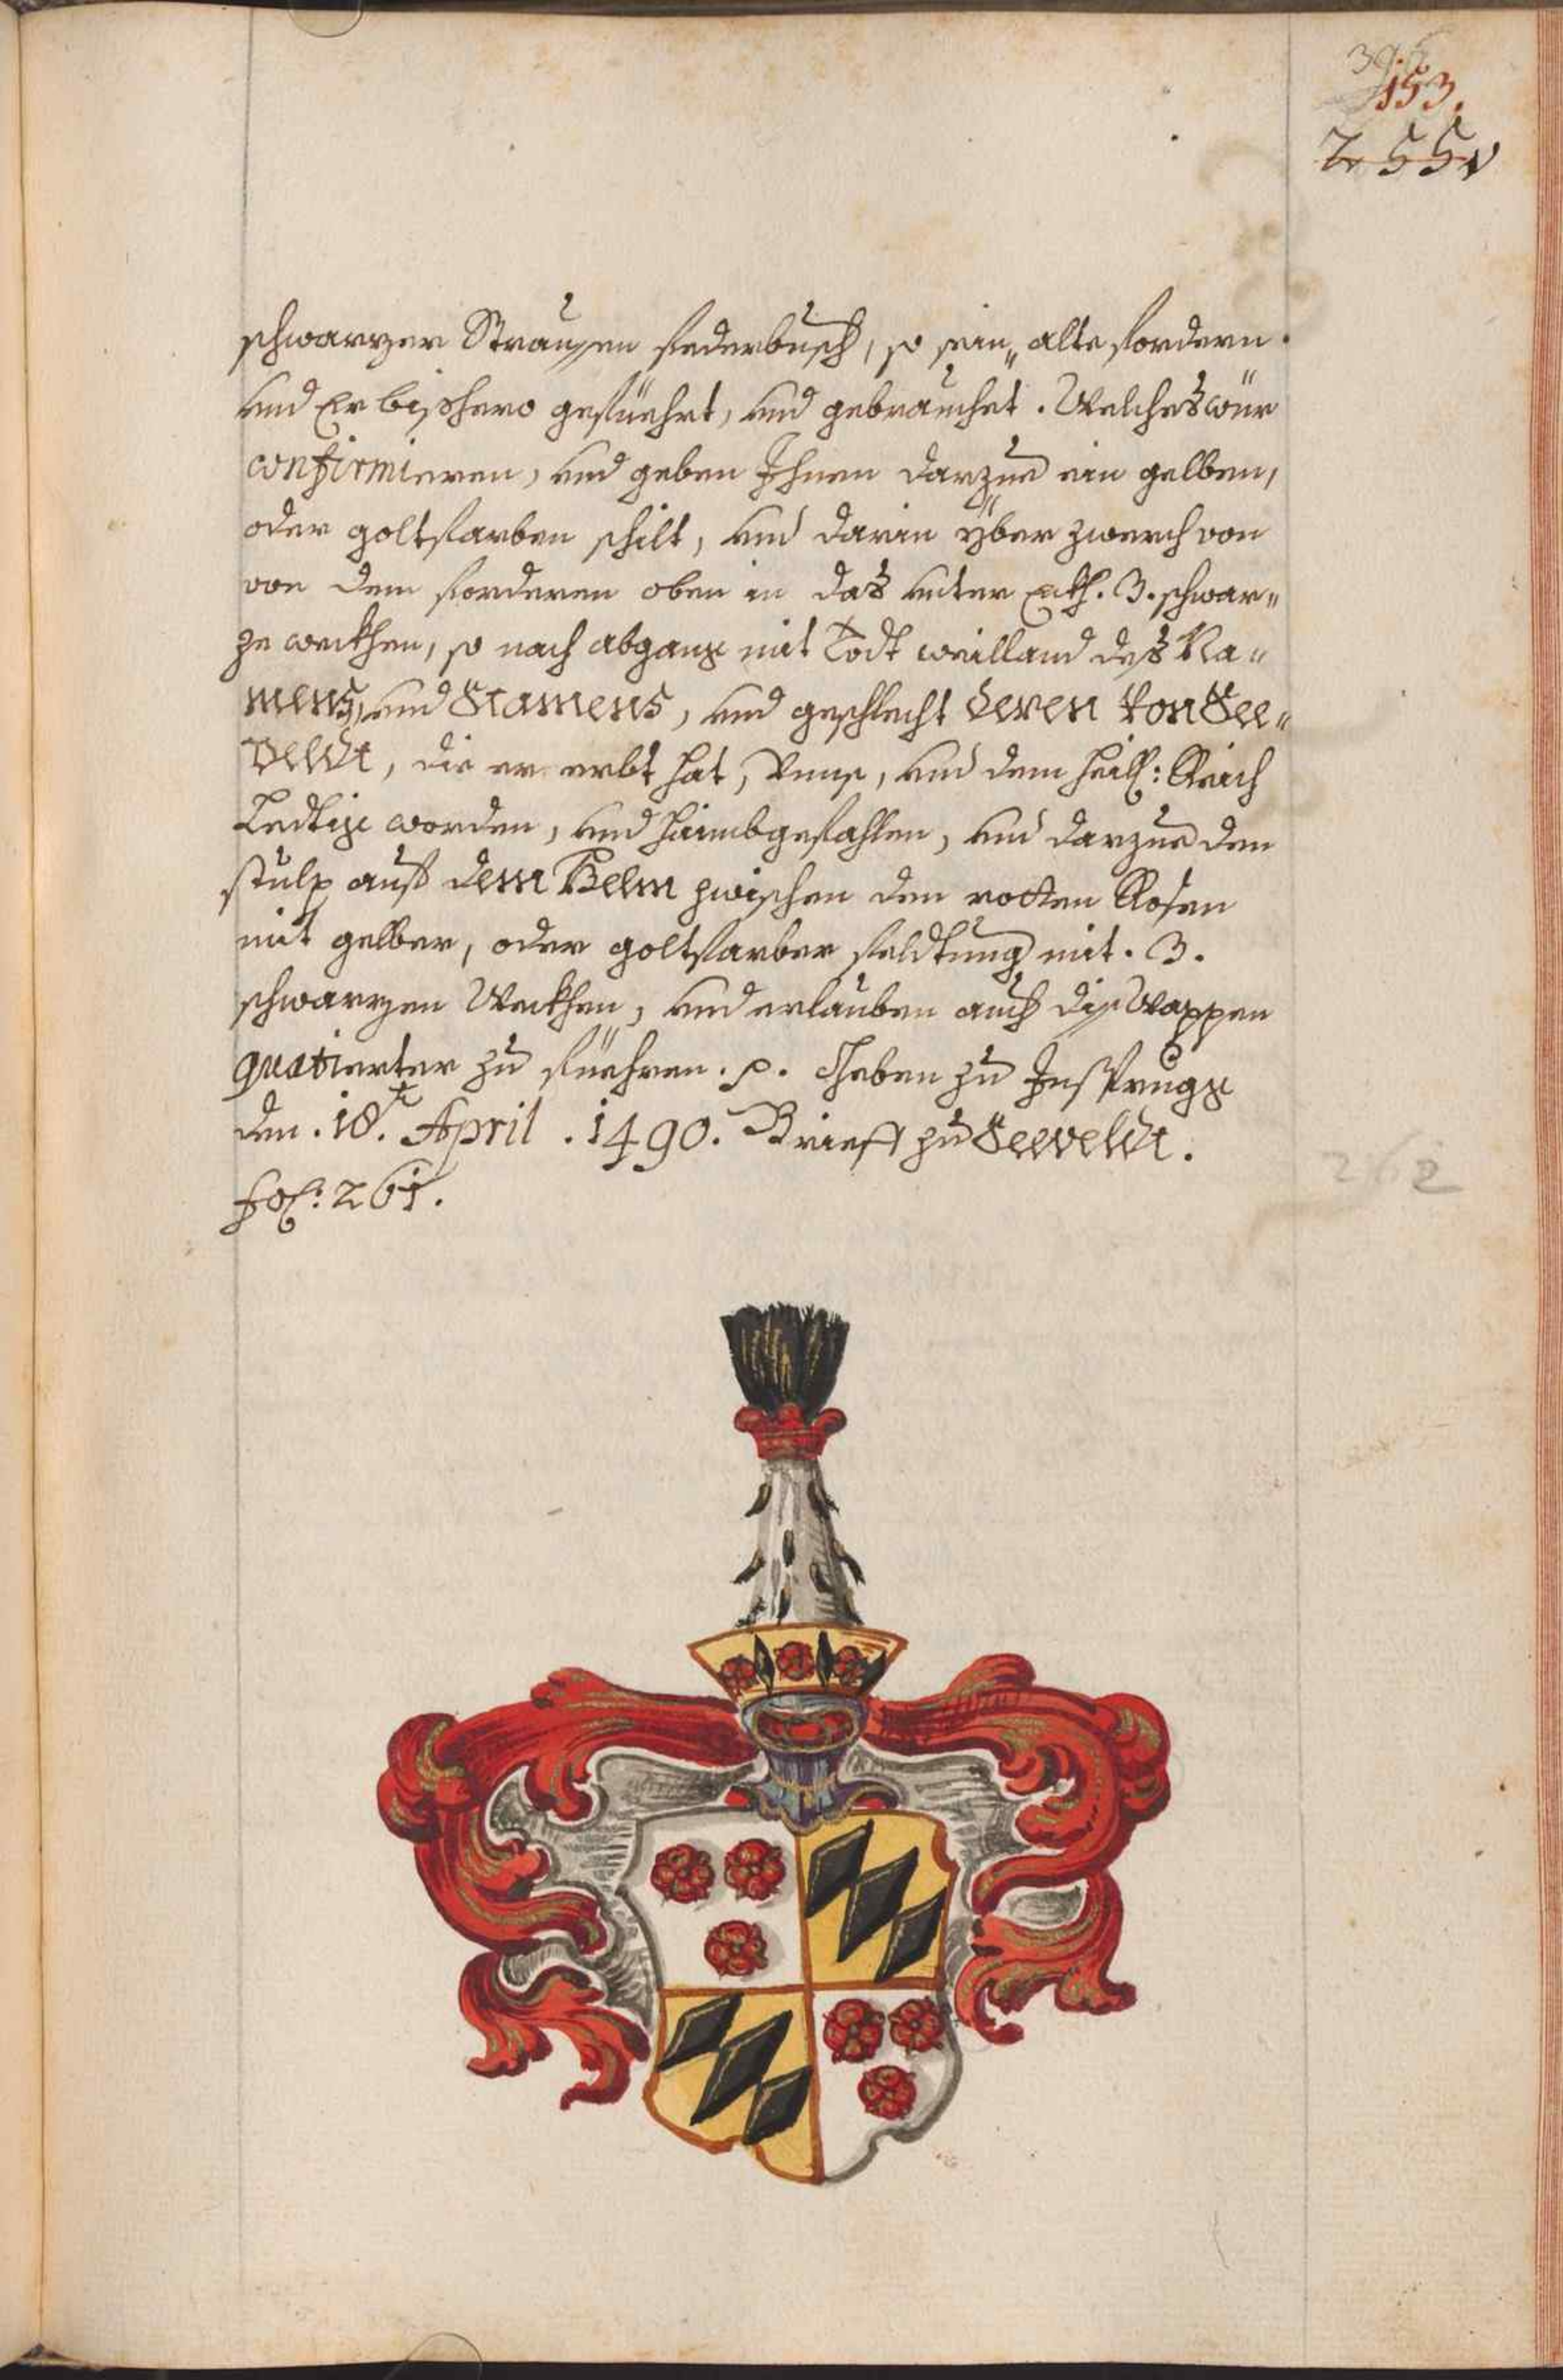 153.
255v
schwarzer Straussen federbusch, so sein„ alte fordern
und Er bishero gefüehrt, und gebrauchet. Welches wür
confirmieren, und geben Ihnen darzue ein gelben,
oder goltfarben schilt, und darin yber zwerch von
von dem forderen oben in das unter Eckh. 3. schwar„
ze weckhen, so nach abgang mit Todt weilland des Na„
mens, und Stamens, und geschlecht deren von See„
veldt, die er erbt hat, Unns, und dem heil: Reich
Ledtig worden, und haimbgefahlen, und darzue den
stulp auf dem Helm zwischen den rotten Rosen
mit gelber, oder goltfarber feldtung mit . 3.
schwarzen Weckhen, und erlauben auch diss Wappen
quatierter zu füehren. p. Geben zu Insprugg
den . 18. April . 1490. Brieff zu Seeveldt.
fol: 261.
262